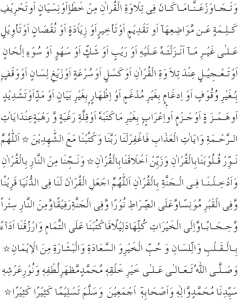 وَتَجَاوَزْ عَنَّا مَا كَانَ فِى تِلَاوَةِ الْقُرْاٰنِ مِنْ خَطَاٍ اَوْ نِسْيَانٍ اَوْ تَحْرِيْفِ
كَلِمَةٍ عَنْ مَّوَاضِعِهَا اَوْ تَقْدِيْمٍ اَوْ تَاْخِيْرٍ اَوْ زِيَادَةٍ اَوْ نُقْصَانٍ اَوْ تَاْوِيْلٍ
عَلٰى غَيْرِ مَا اَنْزَلْتَهٗ عَلَيْهِ اَوْ رَيْبٍ اَوْ شَكٍّ اَوْ سَهْوٍ اَوْ سُوْءِ اِلْحَانٍ
اَوْ تَعْجِيْلٍ عِنْدَ تِلَاوَةِ الْقُرْاٰنِ اَوْ كَسَلٍ اَوْ سُرْعَةٍ اَوْ زَيْغِ لِسَانٍ اَوْ وَقْفٍ
بِغَيْرِ وُقُوْفٍ اَوْ اِدْغَامٍ بِغَيْرِ مُدْغَمٍ اَوْ اِظْهَارٍ بِغَيْرِ بَيَانٍ اَوْ مَدٍّ اَوْ تَشْدِيْدٍ
اَوْ هَمْزَةٍ اَوْ جَزْمٍ اَوْ اِعْرَابٍ بِغَيْرِ مَا كَتَبَهٗ اَوْ قِلَّةِ رَغْبَةٍ وَّرَهْبَةٍ عِنْدَ اٰيَاتِ
الرَّحْمَةِ وَاٰيَاتِ الْعَذَابِ فَاغْفِرْ لَنَا رَبَّنَا وَاكْتُبْنَا مَعَ الشّٰهِدِيْنَ ☆ اَللّٰهُمَّ
نَوِّرْ قُلُوْبَنَا بِالْقُرْاٰنِ وَزَيِّنْ اَخْلَاقَنَا بِالْقُرْاٰنِ ☆ وَنَجِّنَا مِنَ النَّارِ بِالْقُرْاٰنِ
وَاَدْخِلْنَا فِى الْجَنَّةِ بِالْقُرْاٰنِ اَللّٰهُمَّ اجْعَلِ الْقُرْاٰنَ لَنَا فِى الدُّنْيَا قَرِيْنًا
وَّفِى الْقَبْرِ مُوْنِسًا وَّعَلَى الصِّرَاطِ نُوْرًا وَّفِى الْجَنَّةِ رَفِيْقًا وَّمِنَ النَّارِ سِتْرًا
وَّحِجَابًا وَّاِلَى الْخَيْرَاتِ كُلِّهَا دَلِيْلًا فَاكْتُبْنَا عَلَى التَّمَامِ وَارْزُقْنَا اَدَاءً
بِالْقَلْبِ وَاللِّسَانِ وَ حُبِّ الْخَيْرِ وَالسَّعَادَةِ وَالْبَشَارَةِ مِنَ الْاِيْمَانِ ☆
وَصَلَّى اللّٰهُ تَعَالٰى عَلٰى خَيْرِ خَلْقِهٖ مُحَمَّدٍ مَّظْهَرِ لُطْفِهٖ وَنُوْرِ عَرْشِهٖ
سَيِّدِنَا مُحَمَّدٍ وَّاٰلِهٖ وَاَصْحَابِهٖٓ اَجْمَعِيْنَ وَ سَلَّمَ تَسْلِيْمًا كَثِيْرًا كَثِيْرًا ☆